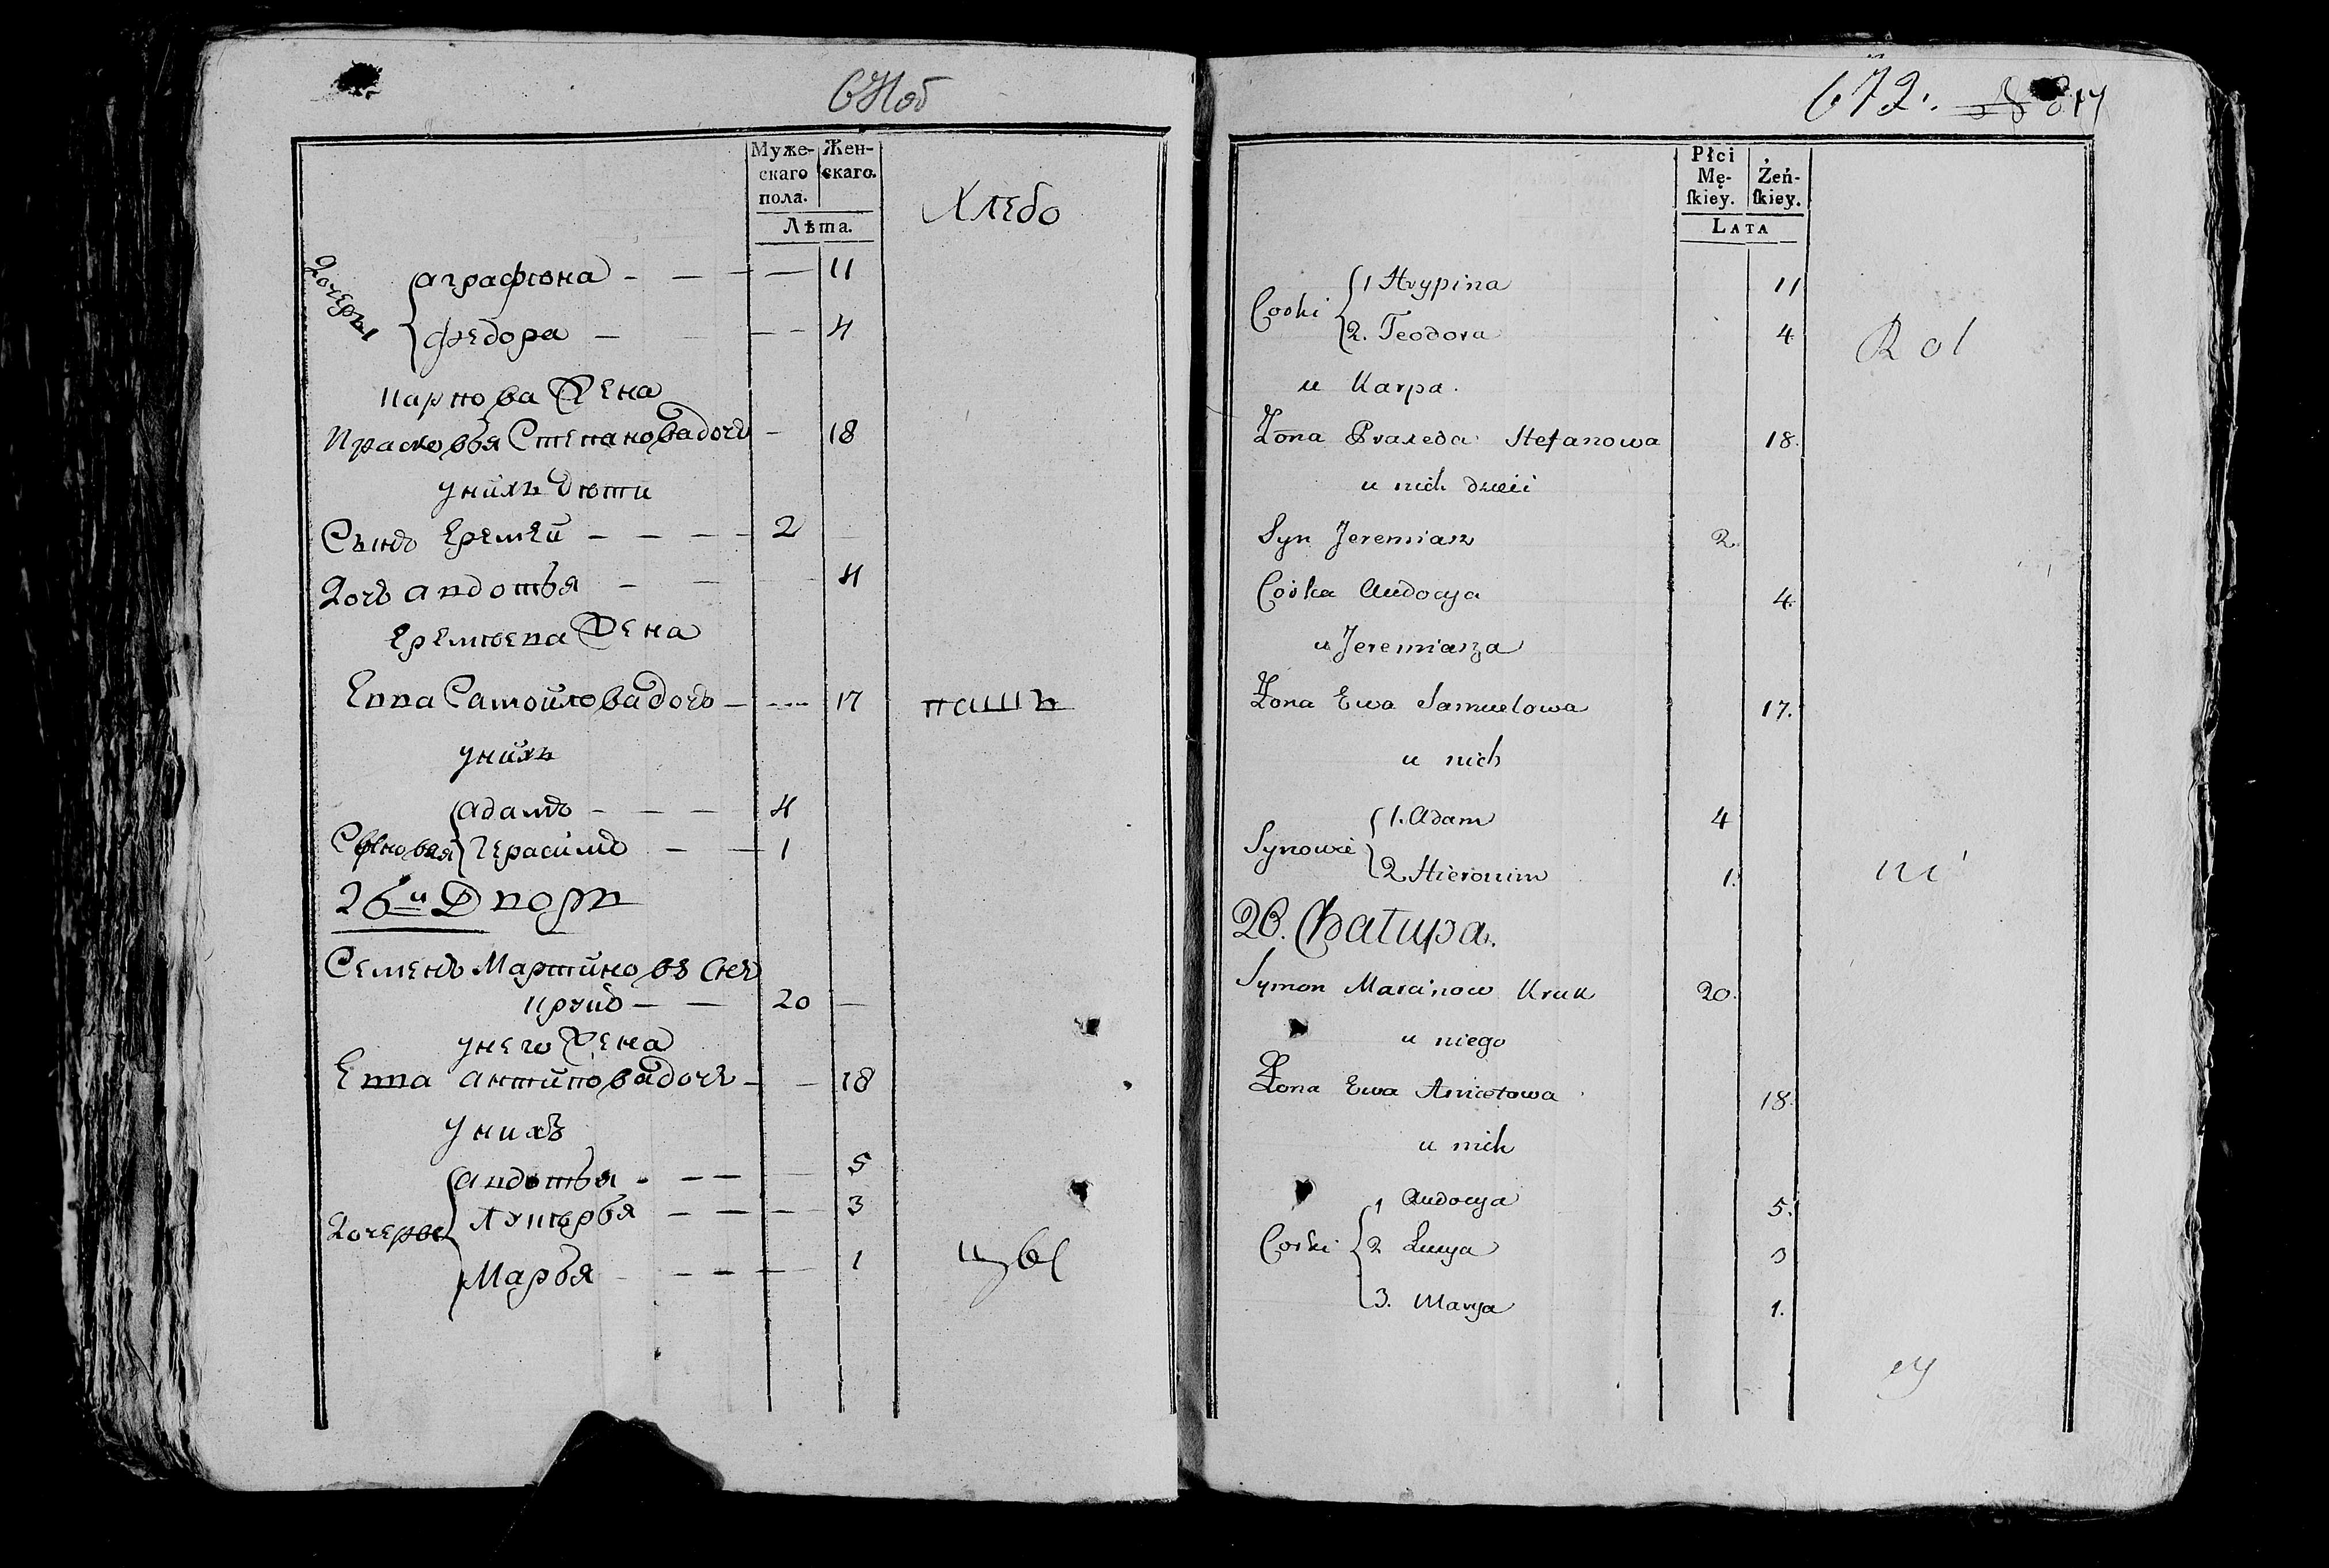 Муже-
скаго
пола.
Жен-
скаго.
Лѣта.
Хлебо
Дочеры
аграфѣна - - - - 11
федора - - - 4
карпова Жена
Прасковья Степановадочь - 18
унихъ Дѣти
Сынъ Еремей - - - - 2
Дочь авдотья - - - 4
Еремѣева Жена
Евва Самойловадочь - - - 17
пашъ
унихъ
адамъ - - - 4
Сыновья Герасимъ - - 1
26й Дворъ
Семенъ Мартиновъ снъ
крукъ - - 20 -
унего Жена
Евва антиповадочь - - 18
унихъ
авдотья - - - - 5
Дочеры Лукерья - - - - 3
Марья - - - - 1
цы
672.
Płci
Mę-
ſkiey.
Żeń-
ſkiey.
LATA
1 Hrypina 11
Corki
2. Teodora 4
Rol
u Karpa.
Żona Praxeda Stefanowa 18.
u nich dzieci
Syn Jeremiasz 2.
Corka Audocya 4.
u Jeremiasza
Żona Ewa Samuelowa 17.
u nich
1. Adam 4
Synowie
2 Hieronim 1.
ni
26. Chałupa.
Symon Marcinow Kruk 20.
u niego
Żona Ewa Anicetowa 18.
u nich
1 Audocya 5.
Corki 2 Łucya 3
3. Marya 1.
cy